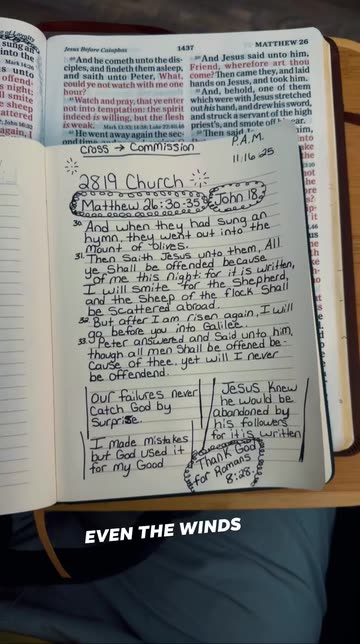 Jesus Before Caiaphas 1437 MATTHEW 26
40 And he cometh unto the dis-
ciples, and findeth them asleep,
and saith unto Peter, What,
could ye not watch with me one
hour?
41 Watch and pray, that ye enter
not into temptation: the spirit
indeed is willing, but the flesh
is weak.
42 He went away again the sec-
50 And Jesus said unto him,
Friend, wherefore art thou
come? Then came they, and laid
hands on Jesus, and took him.
51 And, behold, one of them
which were with Jesus stretched
out his hand, and drew his sword,
and struck a servant of the high
priest's, and smote off his ear.
52 Then said
Cross → Commission
P.A.M.
11.16.25
2819 Church
Matthew 26:30-35
John 18
30. And when they had sung an
hymn, they went out into the
Mount of Olives.
31. Then Saith Jesus unto them, All
ye Shall be offended because
of me this night: for it is written,
I will smite for the Shepherd,
and the Sheep of the flock Shall
be Scattered abroad.
32. But after I am risen again, I will
go before you into Galilee.
33. Peter answered and Said unto him,
though all men Shall be offened be-
cause of thee, yet will I never
be offendend.
Our failures never
Catch God by
Surprise.
I made mistakes
but God used it
for my Good
Jesus Knew
he would be
abandoned by
his followers
for it is written
Thank God
for Romans
8:28.
EVEN THE WINDS